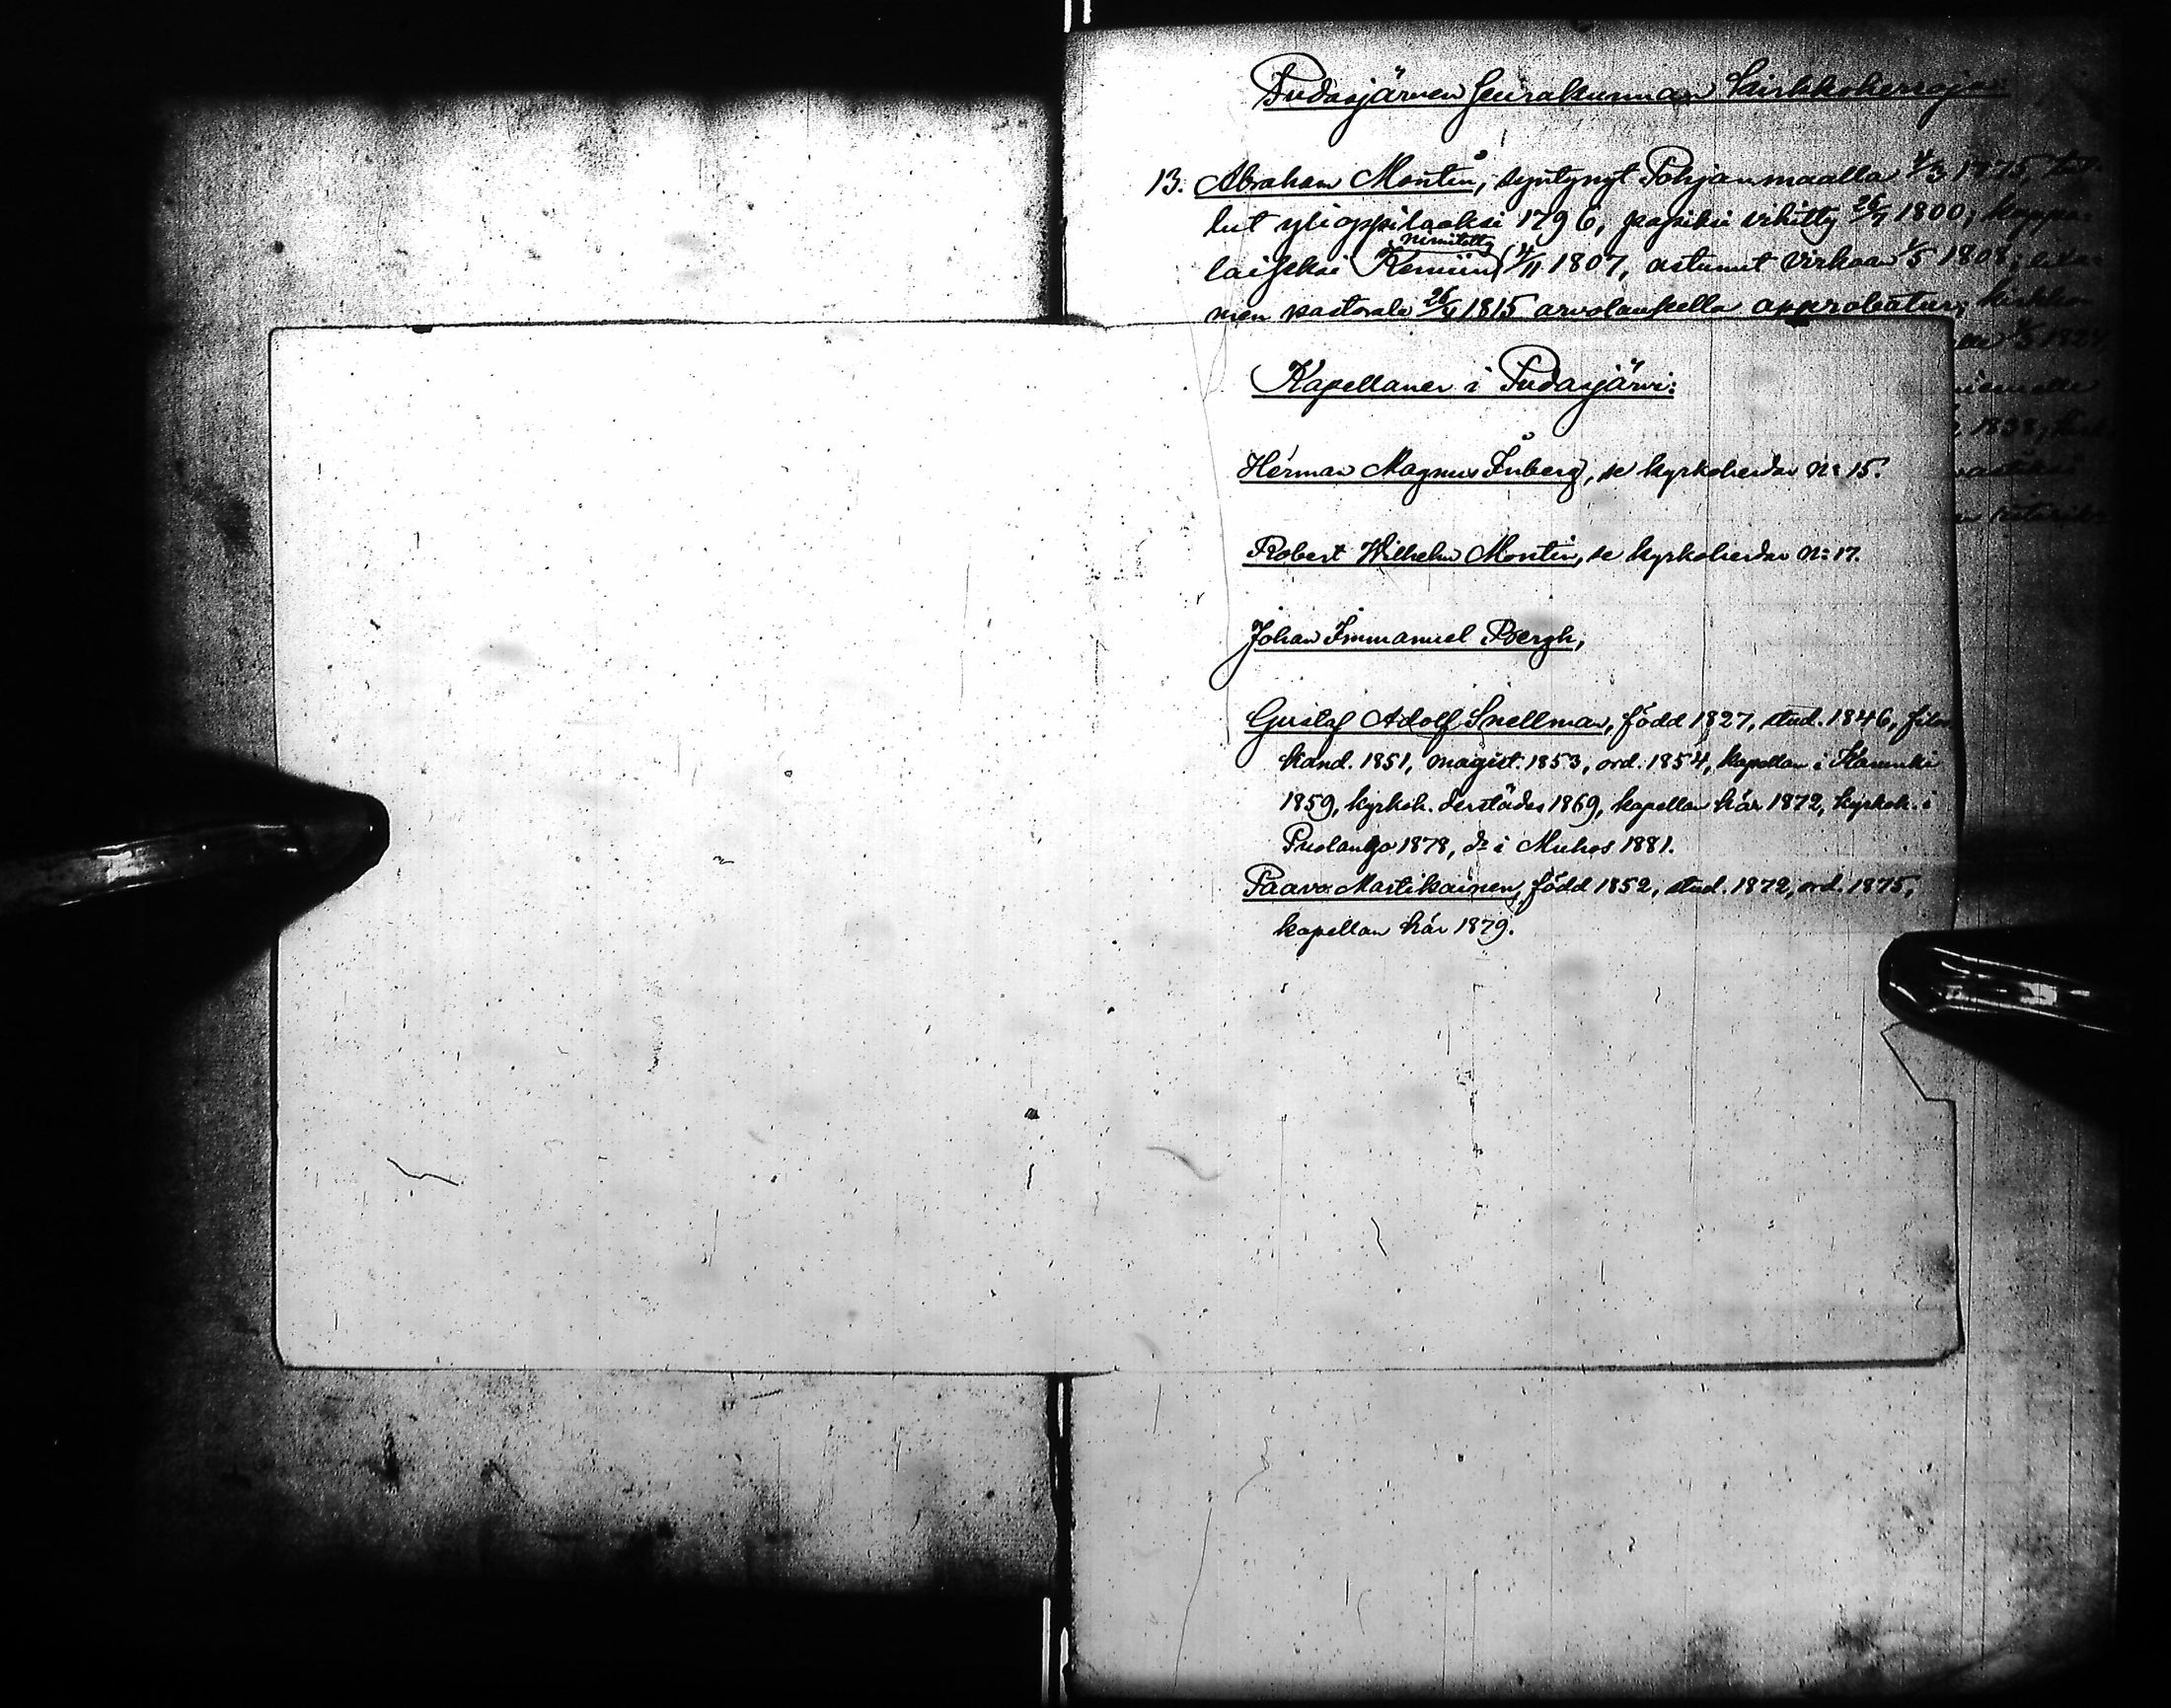 Pudasjärven seurakunnan kirkkoherroja:
13. Abraham Montin, syntynyt Pohjanmaalla 4/3 1775, tul-
lut ylioppilaaksi 1796, papiksi vihitty 26/7 1800, kappa-
nimitetty
laiseksi Kemiin 4/11 1807, astunut virkaan 1/5 1808;
men pastorale 26/4 1815 arvolauseella approbatur; kirkko
1824,
1838,
Kapellaner i Pudasjärvi:
Herman Magnus Inberg, se kyrkoherdar N: 15.
Robert Wilhelm Montin, se kyrkoherdar N: 17.
Johan Immanuel Bergh,
Gustaf Adolf Snellman, född 1827, stud. 1846, filos
kand. 1851, magist. 1853, ord. 1854, kapellan i
1859, kyrkoh. derstädes 1869, kapellan här 1872, kyrkoh. i
Puolango 1878, do i Muhos 1881.
Paavo Martikainen, född 1852, stud. 1872, ord. 1875,
kapellan här 1879.